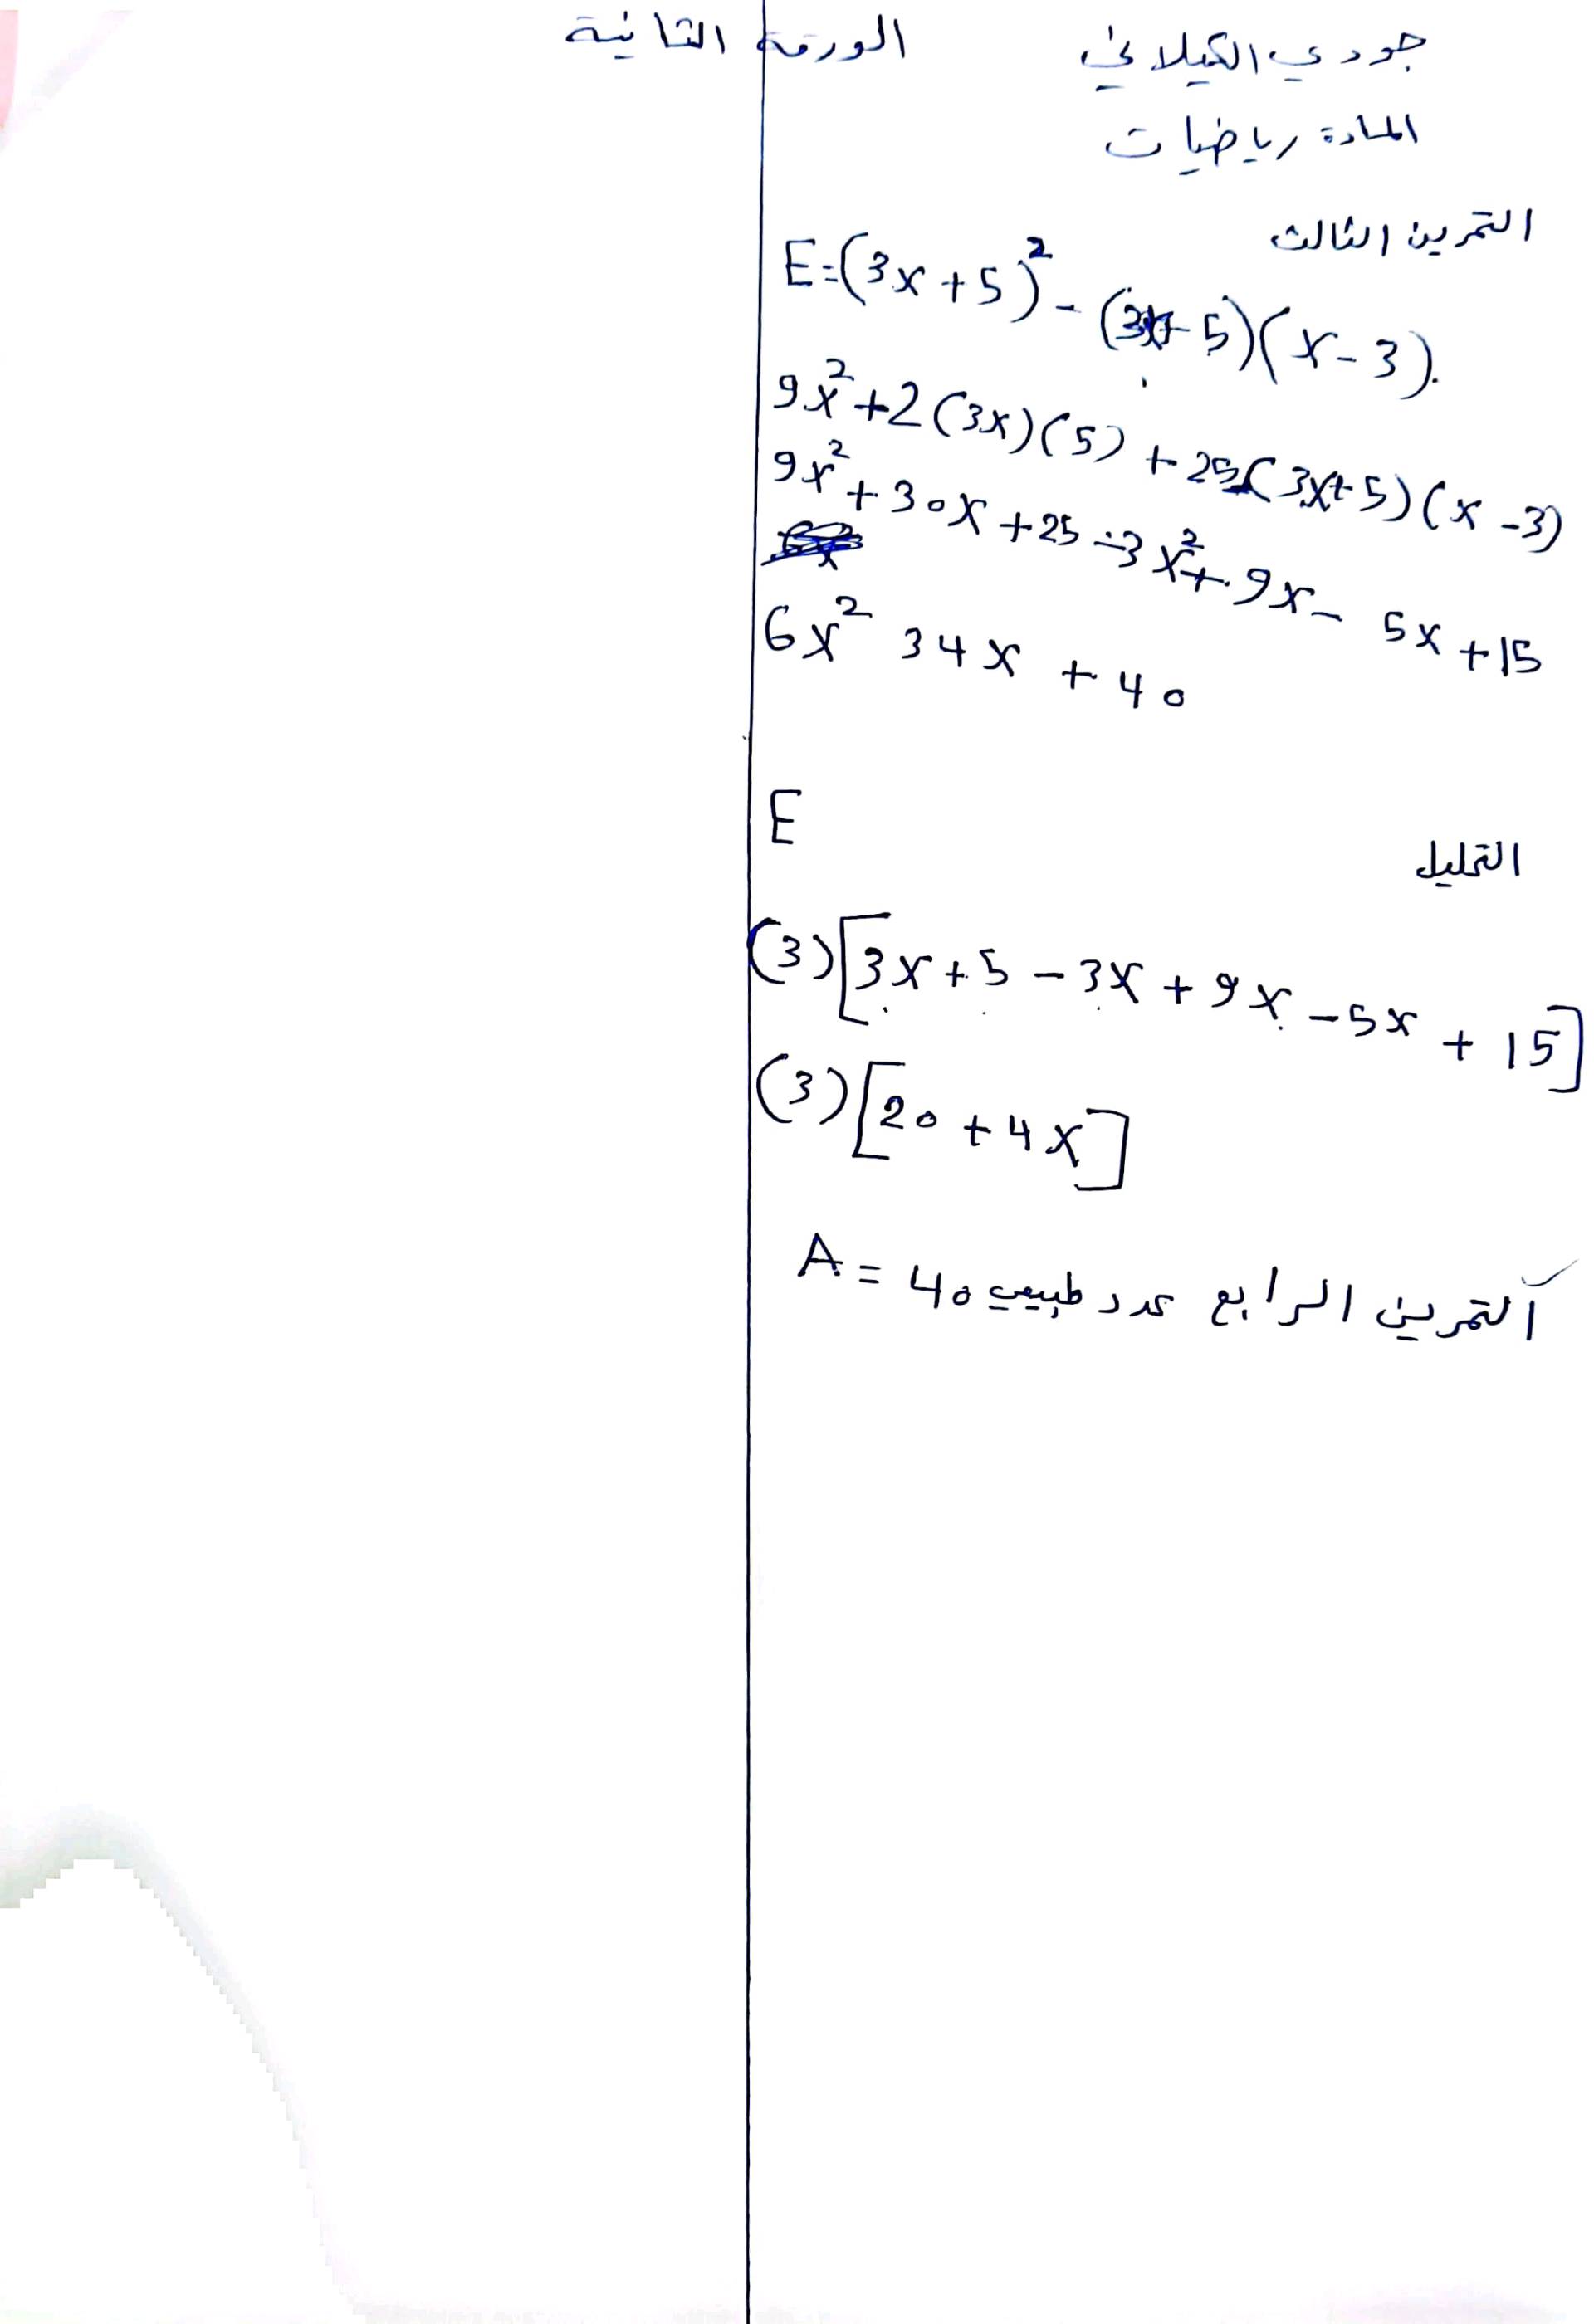 جودي الكيلاني
الورقة الثانية
المادة رياضيات
التمرين الثالث
E=(3x+5)²-(3x+5)(x-3).
9x²+2(3x)(5)+25-(3x+5)(x-3)
9x²+30x+25-3x²+9x-5x+15
6x² 34x+40
E
التحليل
(3)[3x+5-3x+9x-5x+15]
(3)[20+4x]
التمرين الرابع عدد طبيعي A=40